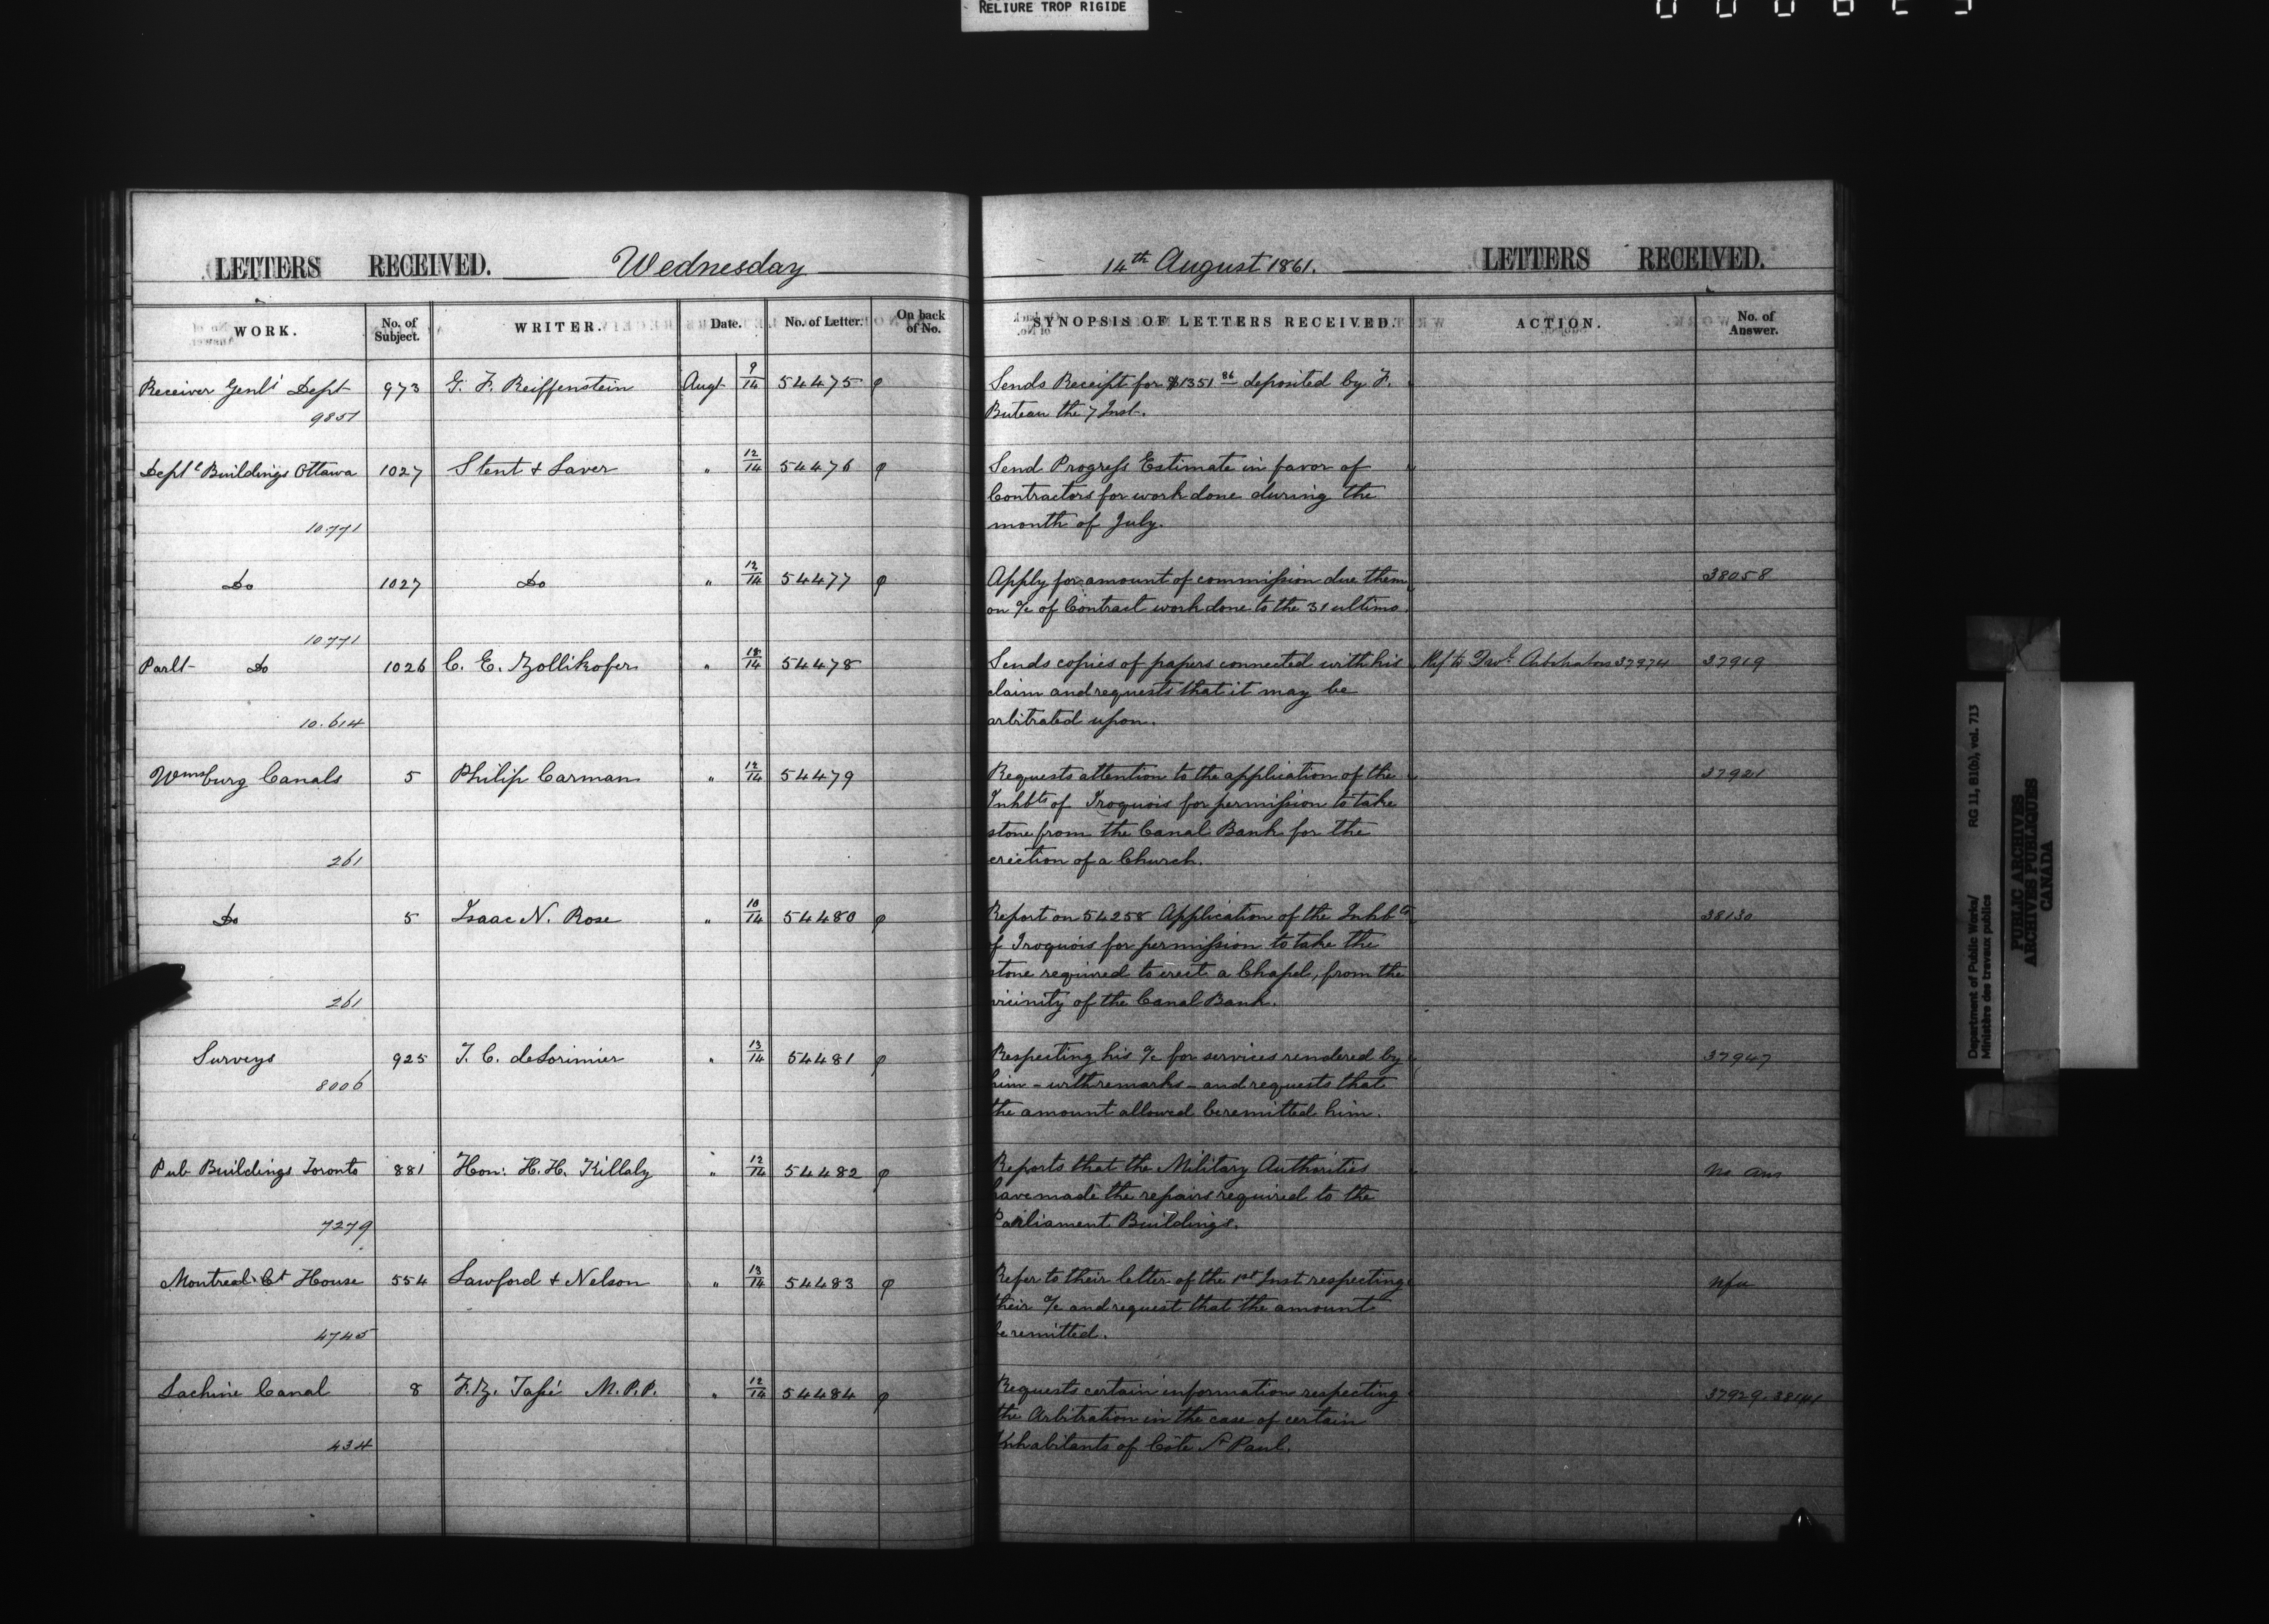 RELIURE TROP RIGIDE
LETTERS RECEIVED. Wednesday 14th August 1861. LETTERS RECEIVED.
WORK. No. of Subject. WRITER. Date. No. of Letter. On back of No. SYNOPSIS OF LETTERS RECEIVED. ACTION. No. of Answer.
Receiver Genl's Dept 973 G. F. Reiffenstein Augt 9/14 54475 φ Sends Receipt for $1351 86 deposited by F.
9851 Buteau the 7 Inst.
Deptl Buildings Ottawa 1027 Stent & Laver " 12/14 54476 φ Send Progress Estimate in favor of
Contractors for work done during the
10.771 month of July.
Do 1027 Do " 12/14 54477 φ Apply for amount of commission due them 38058
on a/c of Contract work done to the 31 ultimo.
10771
Parlt Do 1026 C. E. Zollikofer " 12/14 54478 Sends copies of papers connected with his Ref to Arbitrators 37974 37919
claim and requests that it may be
10.614 arbitrated upon.
Wmsburg Canals 5 Philip Carman " 12/14 54479 Requests attention to the application of the 37921
Inhbts of Iroquois for permission to take
stone from the Canal Bank for the
261 erection of a Church.
Do 5 Isaac N. Rose " 10/14 54480 φ Report on 54258 Application of the Inhbts 38130
of Iroquois for permission to take the
stone required to erect a Chapel, from the
261 vicinity of the Canal Bank.
Surveys 925 T. C. deLorimier " 13/14 54481 φ Respecting his a/c for services rendered by 37947
8006 him - with remarks - and requests that
the amount allowed be remitted him.
Pub Buildings Toronto 881 Hon: H. H. Killaly " 12/14 54482 φ Reports that the Military Authorities no ans
have made the repairs required to the
7279 Parliament Buildings.
Montreal Ct House 554 Lawford & Nelson " 13/14 54483 φ Refer to their letter of the 1st Inst respecting nfa
their a/c and request that the amount
4745 be remitted.
Lachine Canal 8 F. Z. Tassé M.P.P. " 12/14 54484 φ Requests certain information respecting 37929. 38141
the Arbitration in the case of certain
434 Inhabitants of Côte St Paul.
Department of Public Works/ RG 11, B1(b), vol. 713
Ministère des travaux publics
PUBLIC ARCHIVES
ARCHIVES PUBLIQUES
CANADA